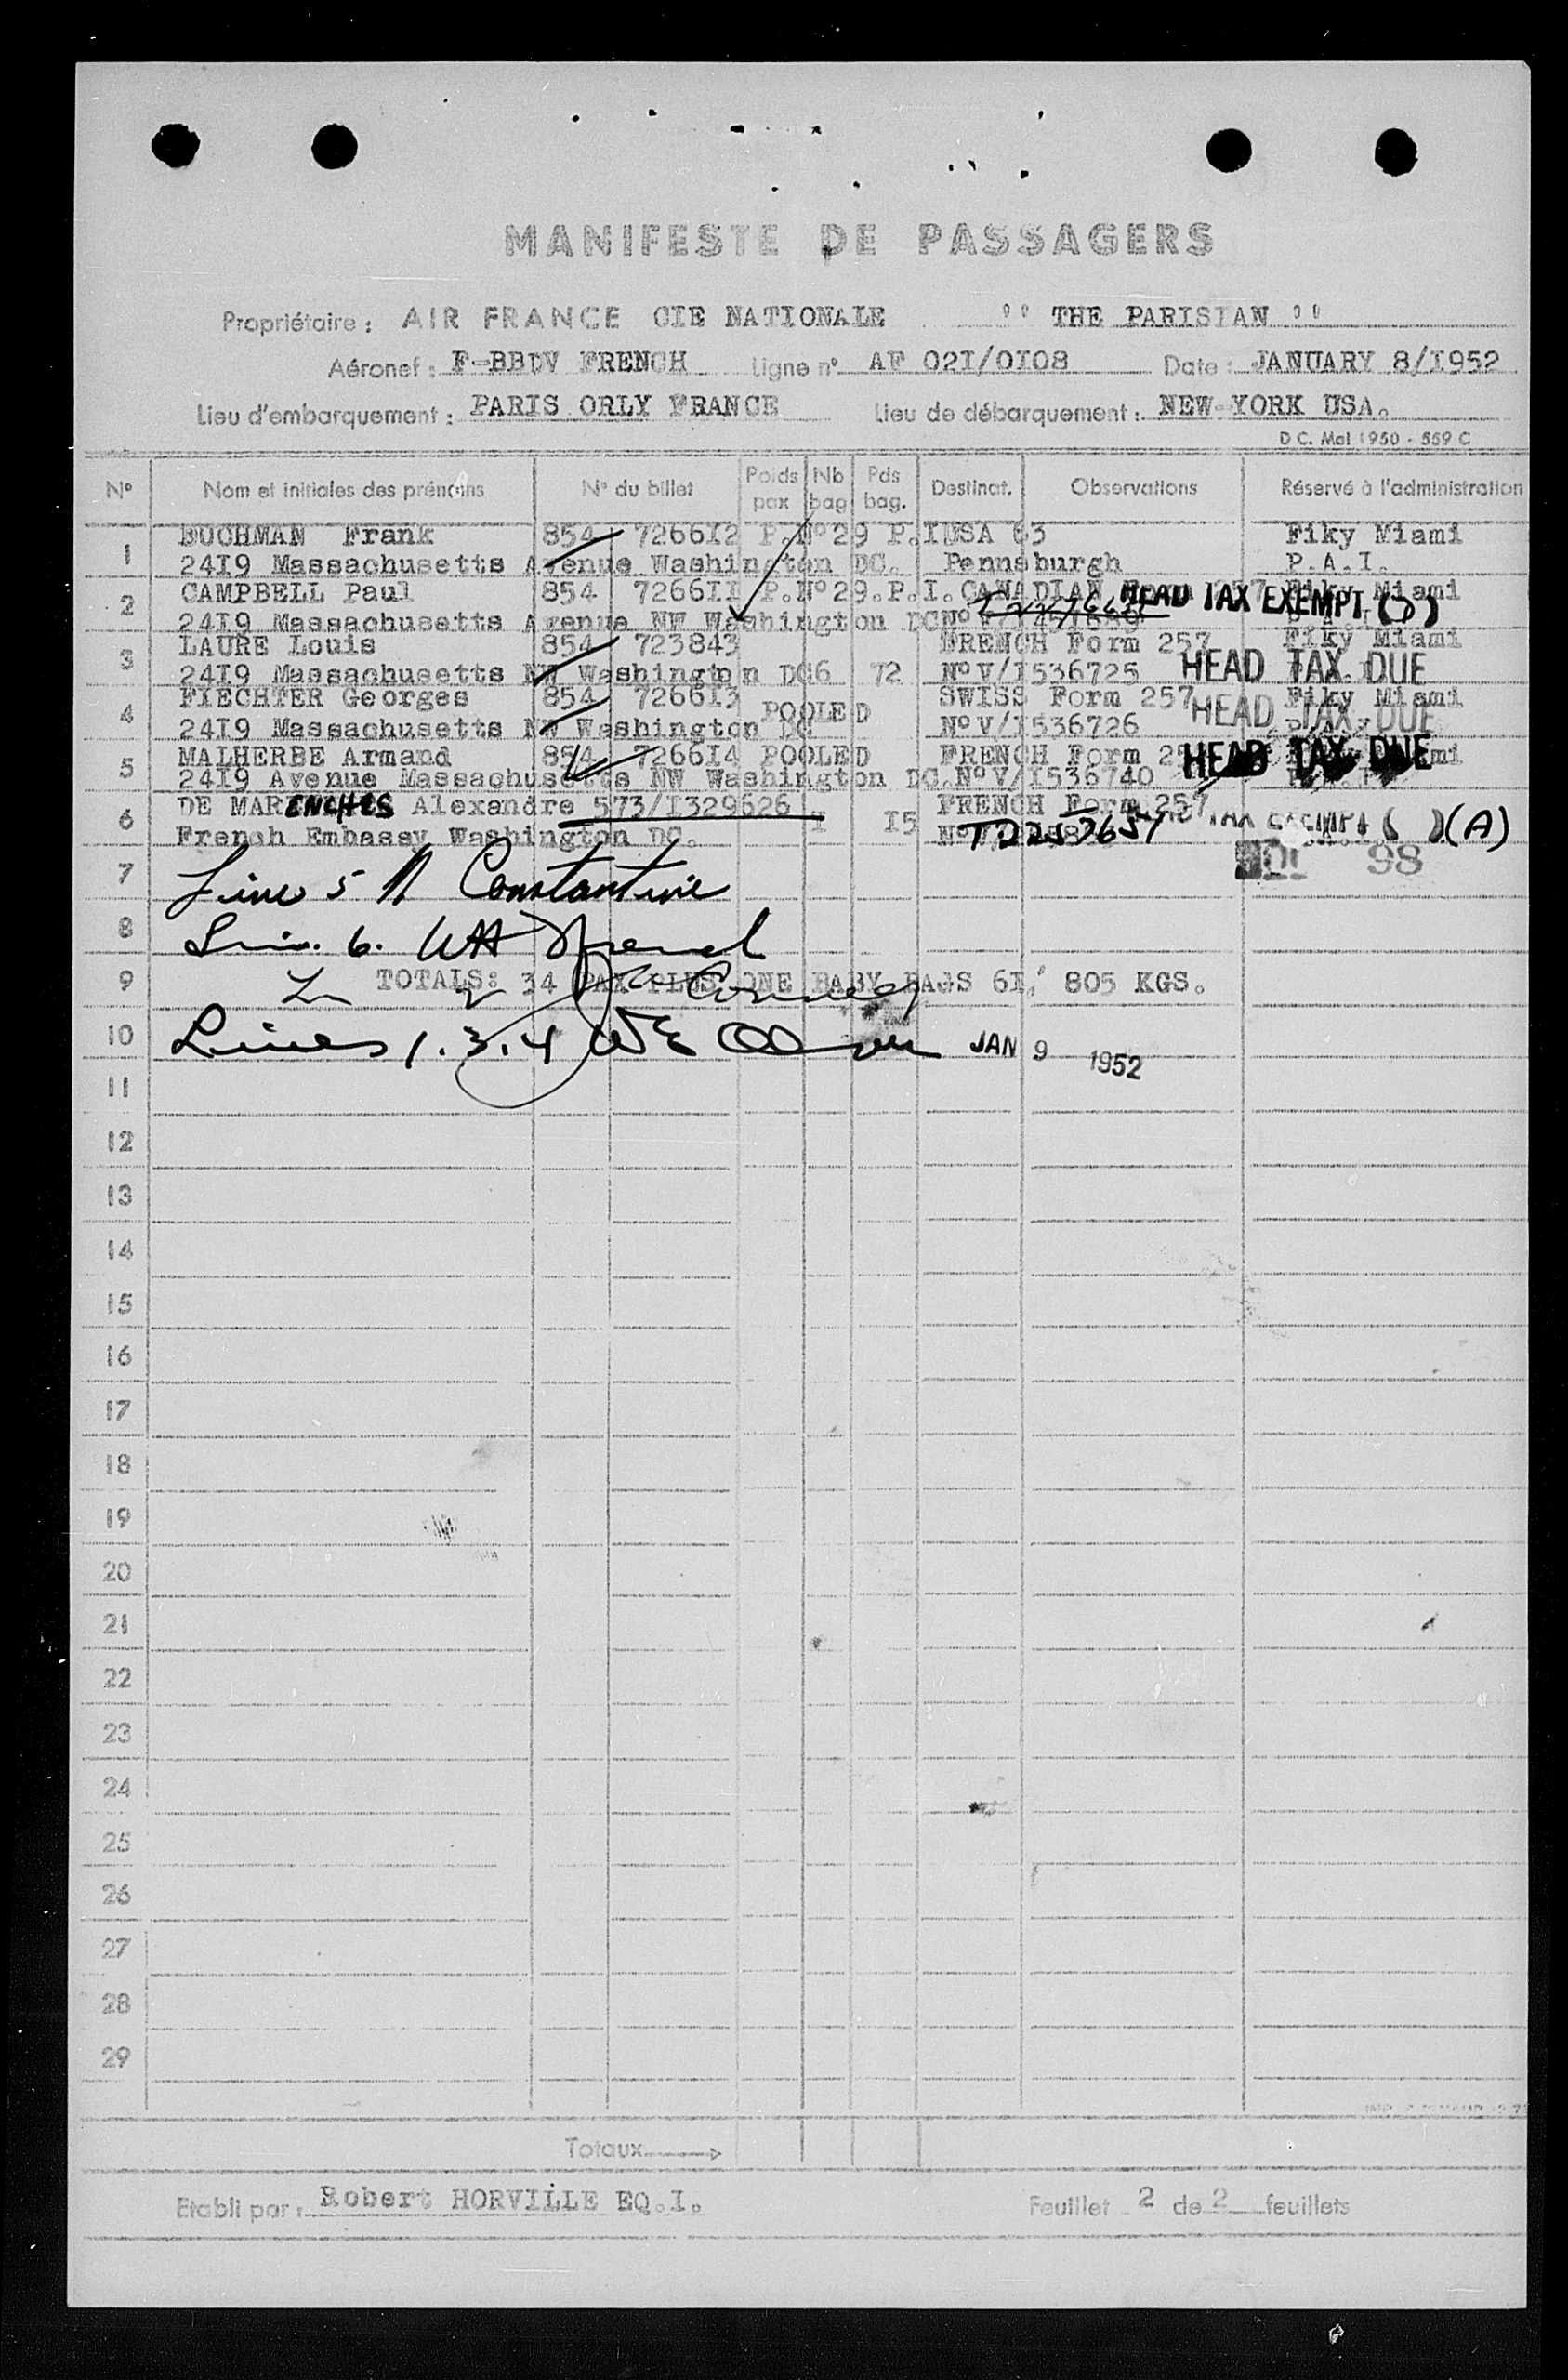 MANIFESTE DE PASSAGERS
Propriétaire : AIR FRANCE CIE NATIONALE " THE PARISIAN "
Aéronef : F-BBDV FRENCH Ligne n° AF 02I/0I08 Date : JANUARY 8/I952
Lieu d'embarquement : PARIS ORLY FRANCE Lieu de débarquement : NEW-YORK USA.
D C. Mai 1950 - 559 C
N° Nom et initiales des prénoms N° du billet Poids pax Nb bag Pds bag. Destinat. Observations Réservé à l'administration
1 BUCHMAN Frank 854 7266I2 P.N°29 P.I USA 63 Fiky Miami
24I9 Massachusetts Avenue Washington DC. Pennsburgh P.A.I.
2 CAMPBELL Paul 854 7266II P.N°29.P.I. CANADIAN 7 Fiky Miami
HEAD TAX EXEMPT
24I9 Massachusetts Avenue NW Washington DC N°
3 LAURE Louis 854 723843 FRENCH Form 257 Fiky Miami
24I9 Massachusetts NW Washington DC 6 72 N°V/I536725 HEAD TAX DUE
4 FIECHTER Georges 854 7266I3 POOLED SWISS Form 257 Fiky Miami
HEAD TAX DUE
24I9 Massachusetts NW Washington DC N°V/I536726
5 MALHERBE Armand 854 7266I4 POOLED FRENCH Form HEAD TAX DUE
24I9 Avenue Massachusetts NW Washington DC. N°V/I536740
6 DE MARENCHES Alexandre 573/I329626 I I5 FRENCH Form 257
French Embassy Washington DC. N° (A)
98
7 Line 5 A Constantine
8 Lin. 6.
9 TOTALS: 34 PAX PLUS ONE BABY BAGS 6I, 805 KGS.
Ln 2
10 Lines 1.3.4 JAN 9 1952
11
12
13
14
15
16
17
18
19
20
21
22
23
24
25
26
27
28
29
Totaux
Etabli par : Robert HORVILLE EQ.I. Feuillet 2 de 2 feuillets